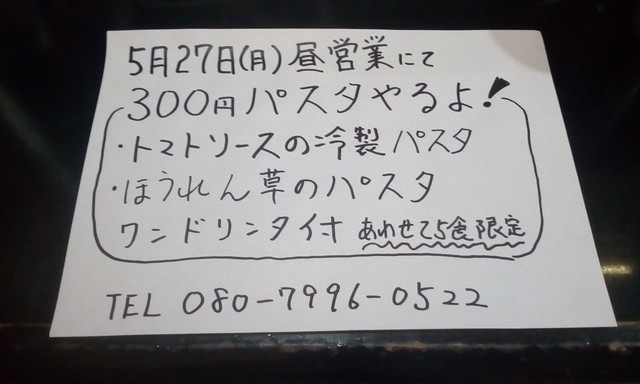 5月27日(月)昼営業にて
300円パスタやるよ!
・トマトソースの冷製パスタ
・ほうれん草のパスタ
ワンドリンクタイオ あわせて5食限定
TEL 080-7996-0522